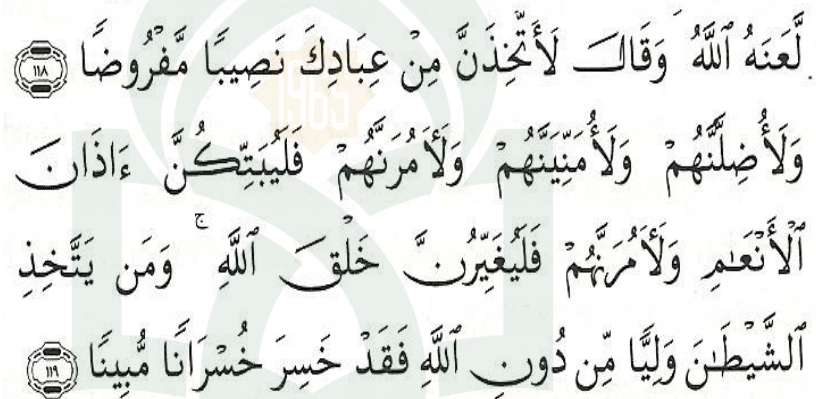 لَّعَنَهُ ٱللَّهُ ۘ وَقَالَ لَأَتَّخِذَنَّ مِنْ عِبَادِكَ نَصِيبًا مَّفْرُوضًا ١١٨
وَلَأُضِلَّنَّهُمْ وَلَأُمَنِّيَنَّهُمْ وَلَأٓمُرَنَّهُمْ فَلَيُبَتِّكُنَّ ءَاذَانَ
ٱلْأَنْعَٰمِ وَلَأٓمُرَنَّهُمْ فَلَيُغَيِّرُنَّ خَلْقَ ٱللَّهِ ۚ وَمَن يَتَّخِذِ
ٱلشَّيْطَٰنَ وَلِيًّا مِّن دُونِ ٱللَّهِ فَقَدْ خَسِرَ خُسْرَانًا مُّبِينًا ١١٩
1965